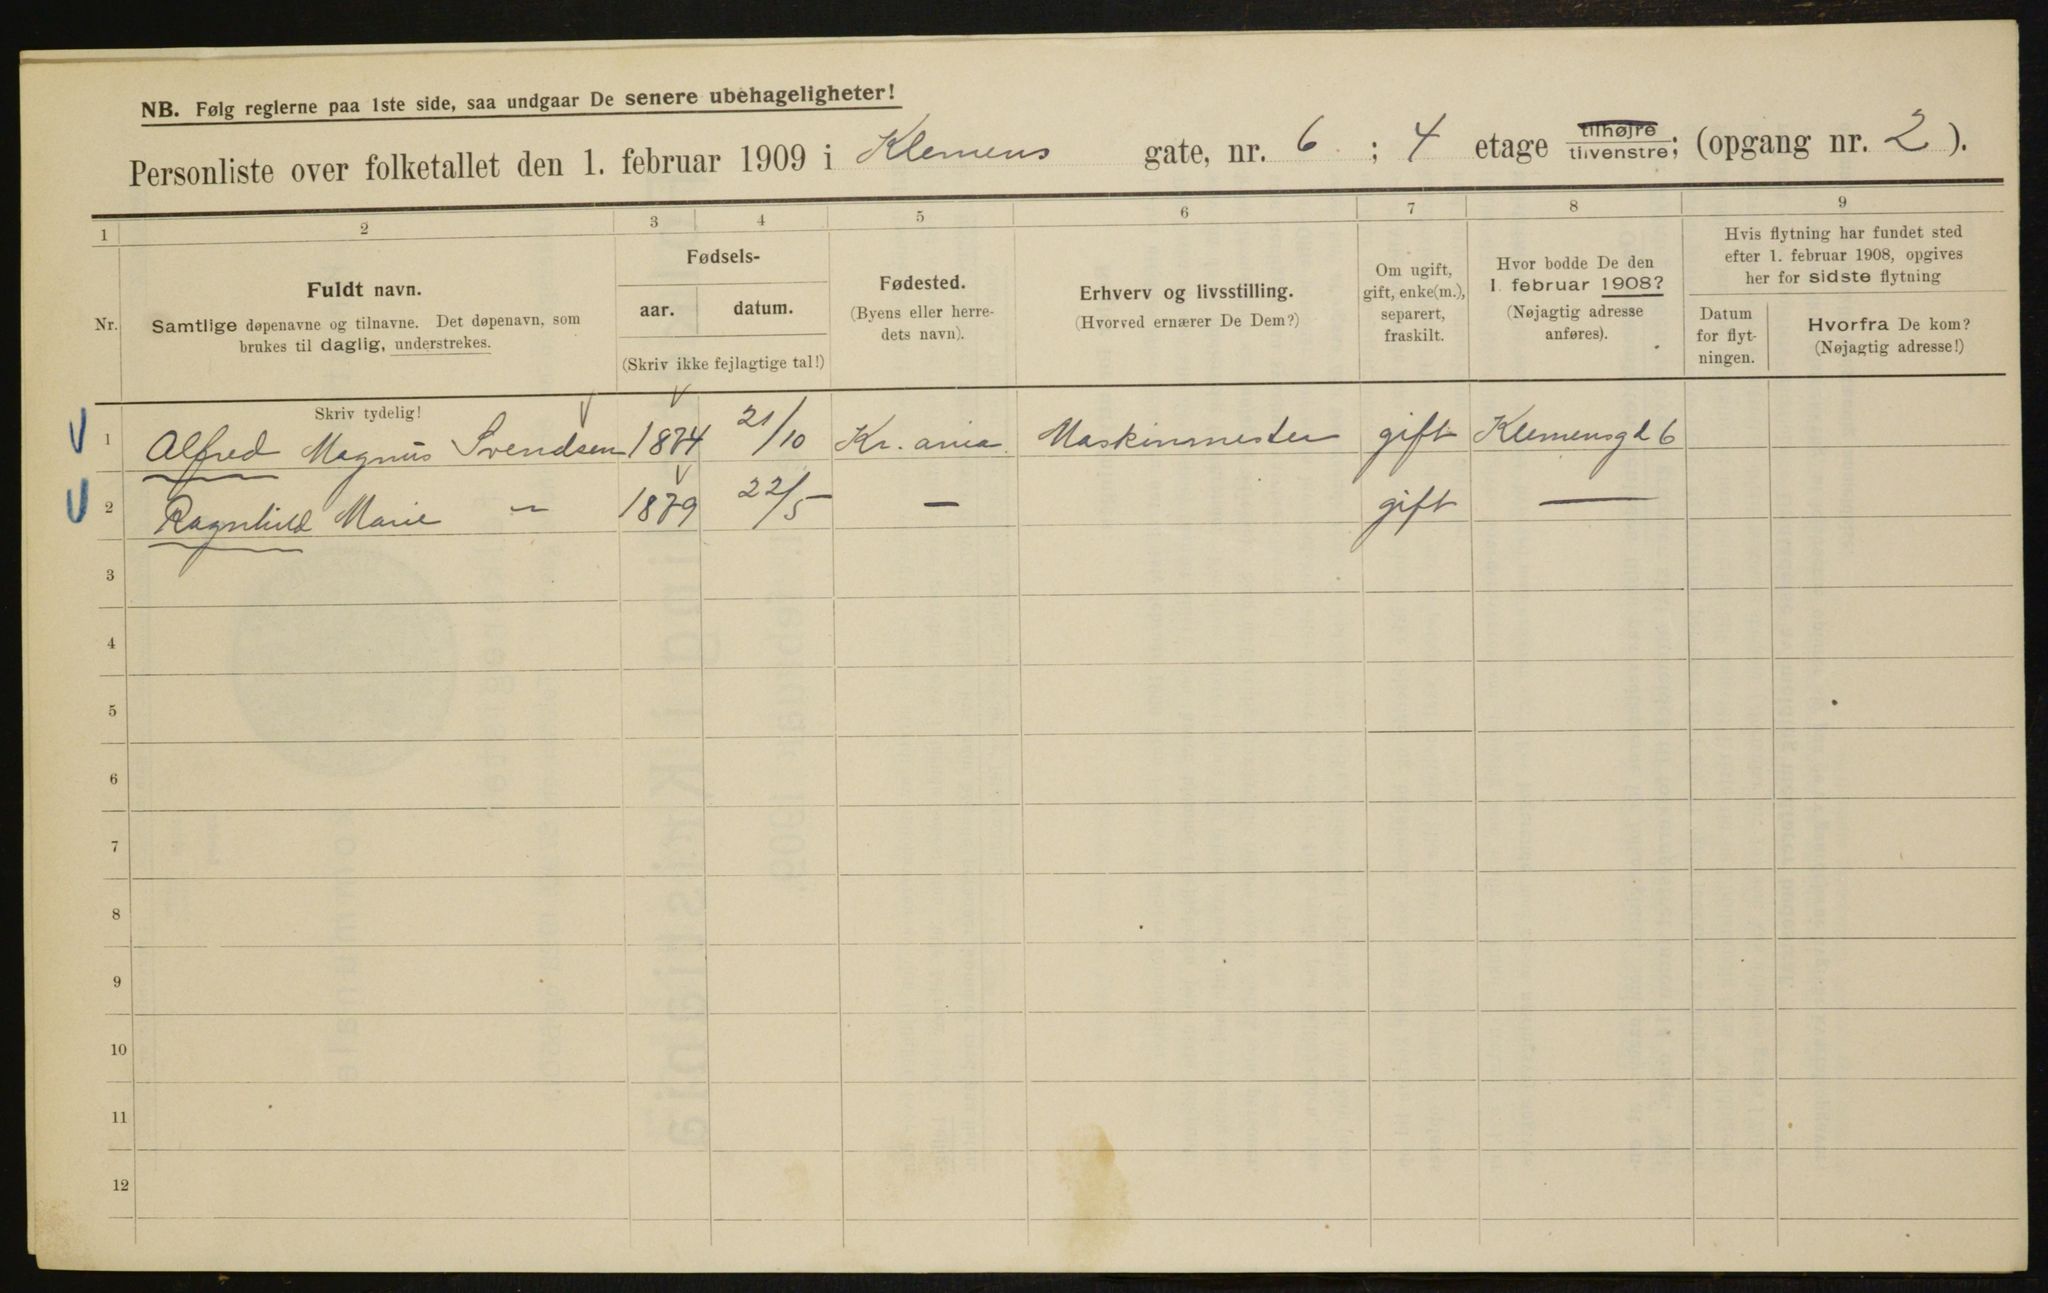 NB. Følg reglerne paa 1ste side, saa undgaar De senere ubehageligheter!
Personliste over folketallet den 1. februar 1909 i Klemens gate, nr. 6 ; 4 etage tilhøjre tilvenstre; (opgang nr. 2 ).
1 2 3 4 5 6 7 8 9
Nr.
Fuldt navn.
Samtlige døpenavne og tilnavne. Det døpenavn, som
brukes til daglig, understrekes.
Fødsels-
aar. datum.
(Skriv ikke fejlagtige tal!)
Fødested.
(Byens eller herre-
dets navn).
Erhverv og livsstilling.
(Hvorved ernærer De Dem?)
Om ugift,
gift, enke(m.),
separert,
fraskilt.
Hvor bodde De den
1. februar 1908?
(Nøjagtig adresse
anføres).
Hvis flytning har fundet sted
efter 1. februar 1908, opgives
her for sidste flytning
Datum
for flyt-
ningen.
Hvorfra De kom?
(Nøjagtig adresse!)
Skriv tydelig!
1 Alfred Magnus Svendsen 1874 21/10 Kr.ania Maskinmester gift Klemensgd 6
2 Ragnhild Marie -"- 1879 22/5 — gift —
3
4
5
6
7
8
9
10
11
12